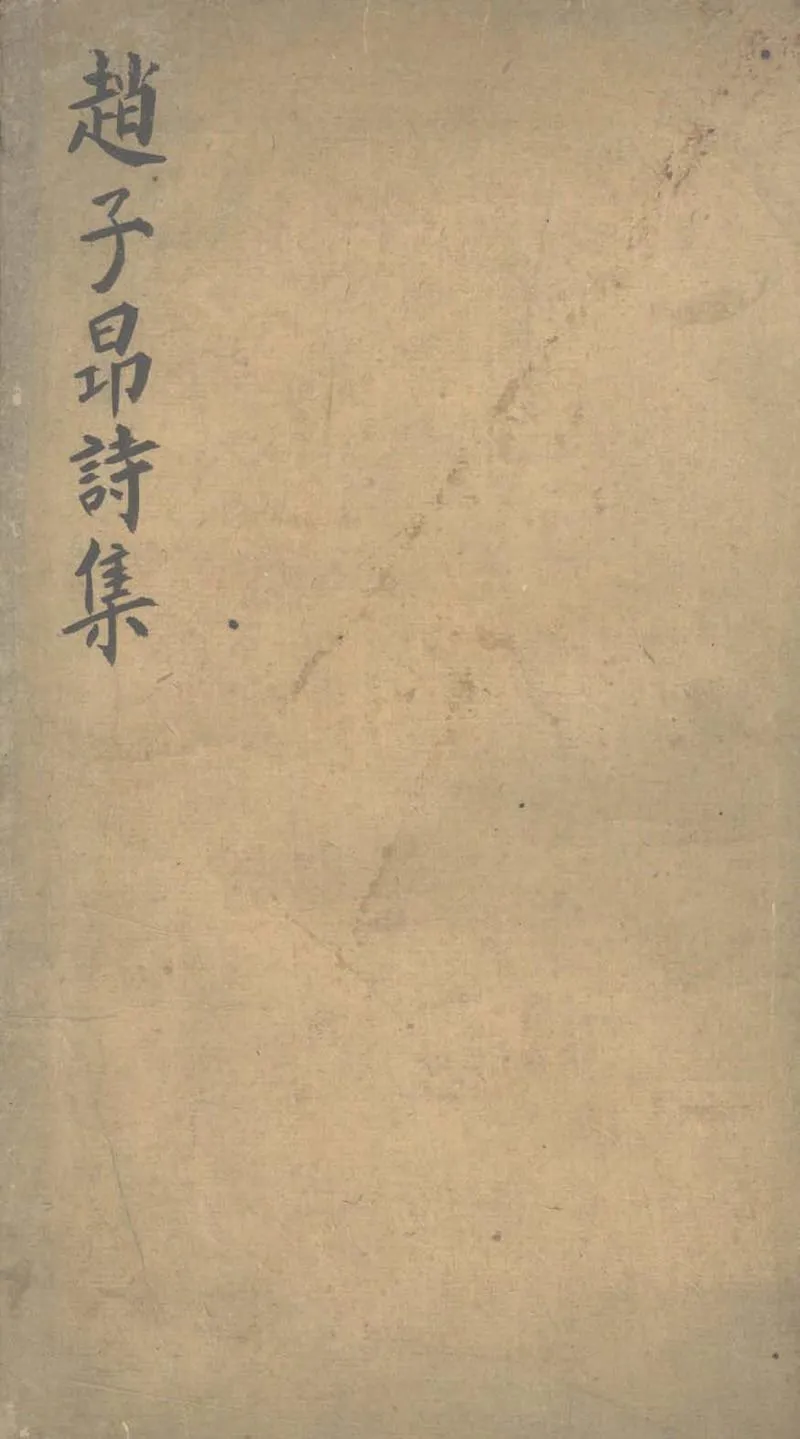 趙子昂詩集